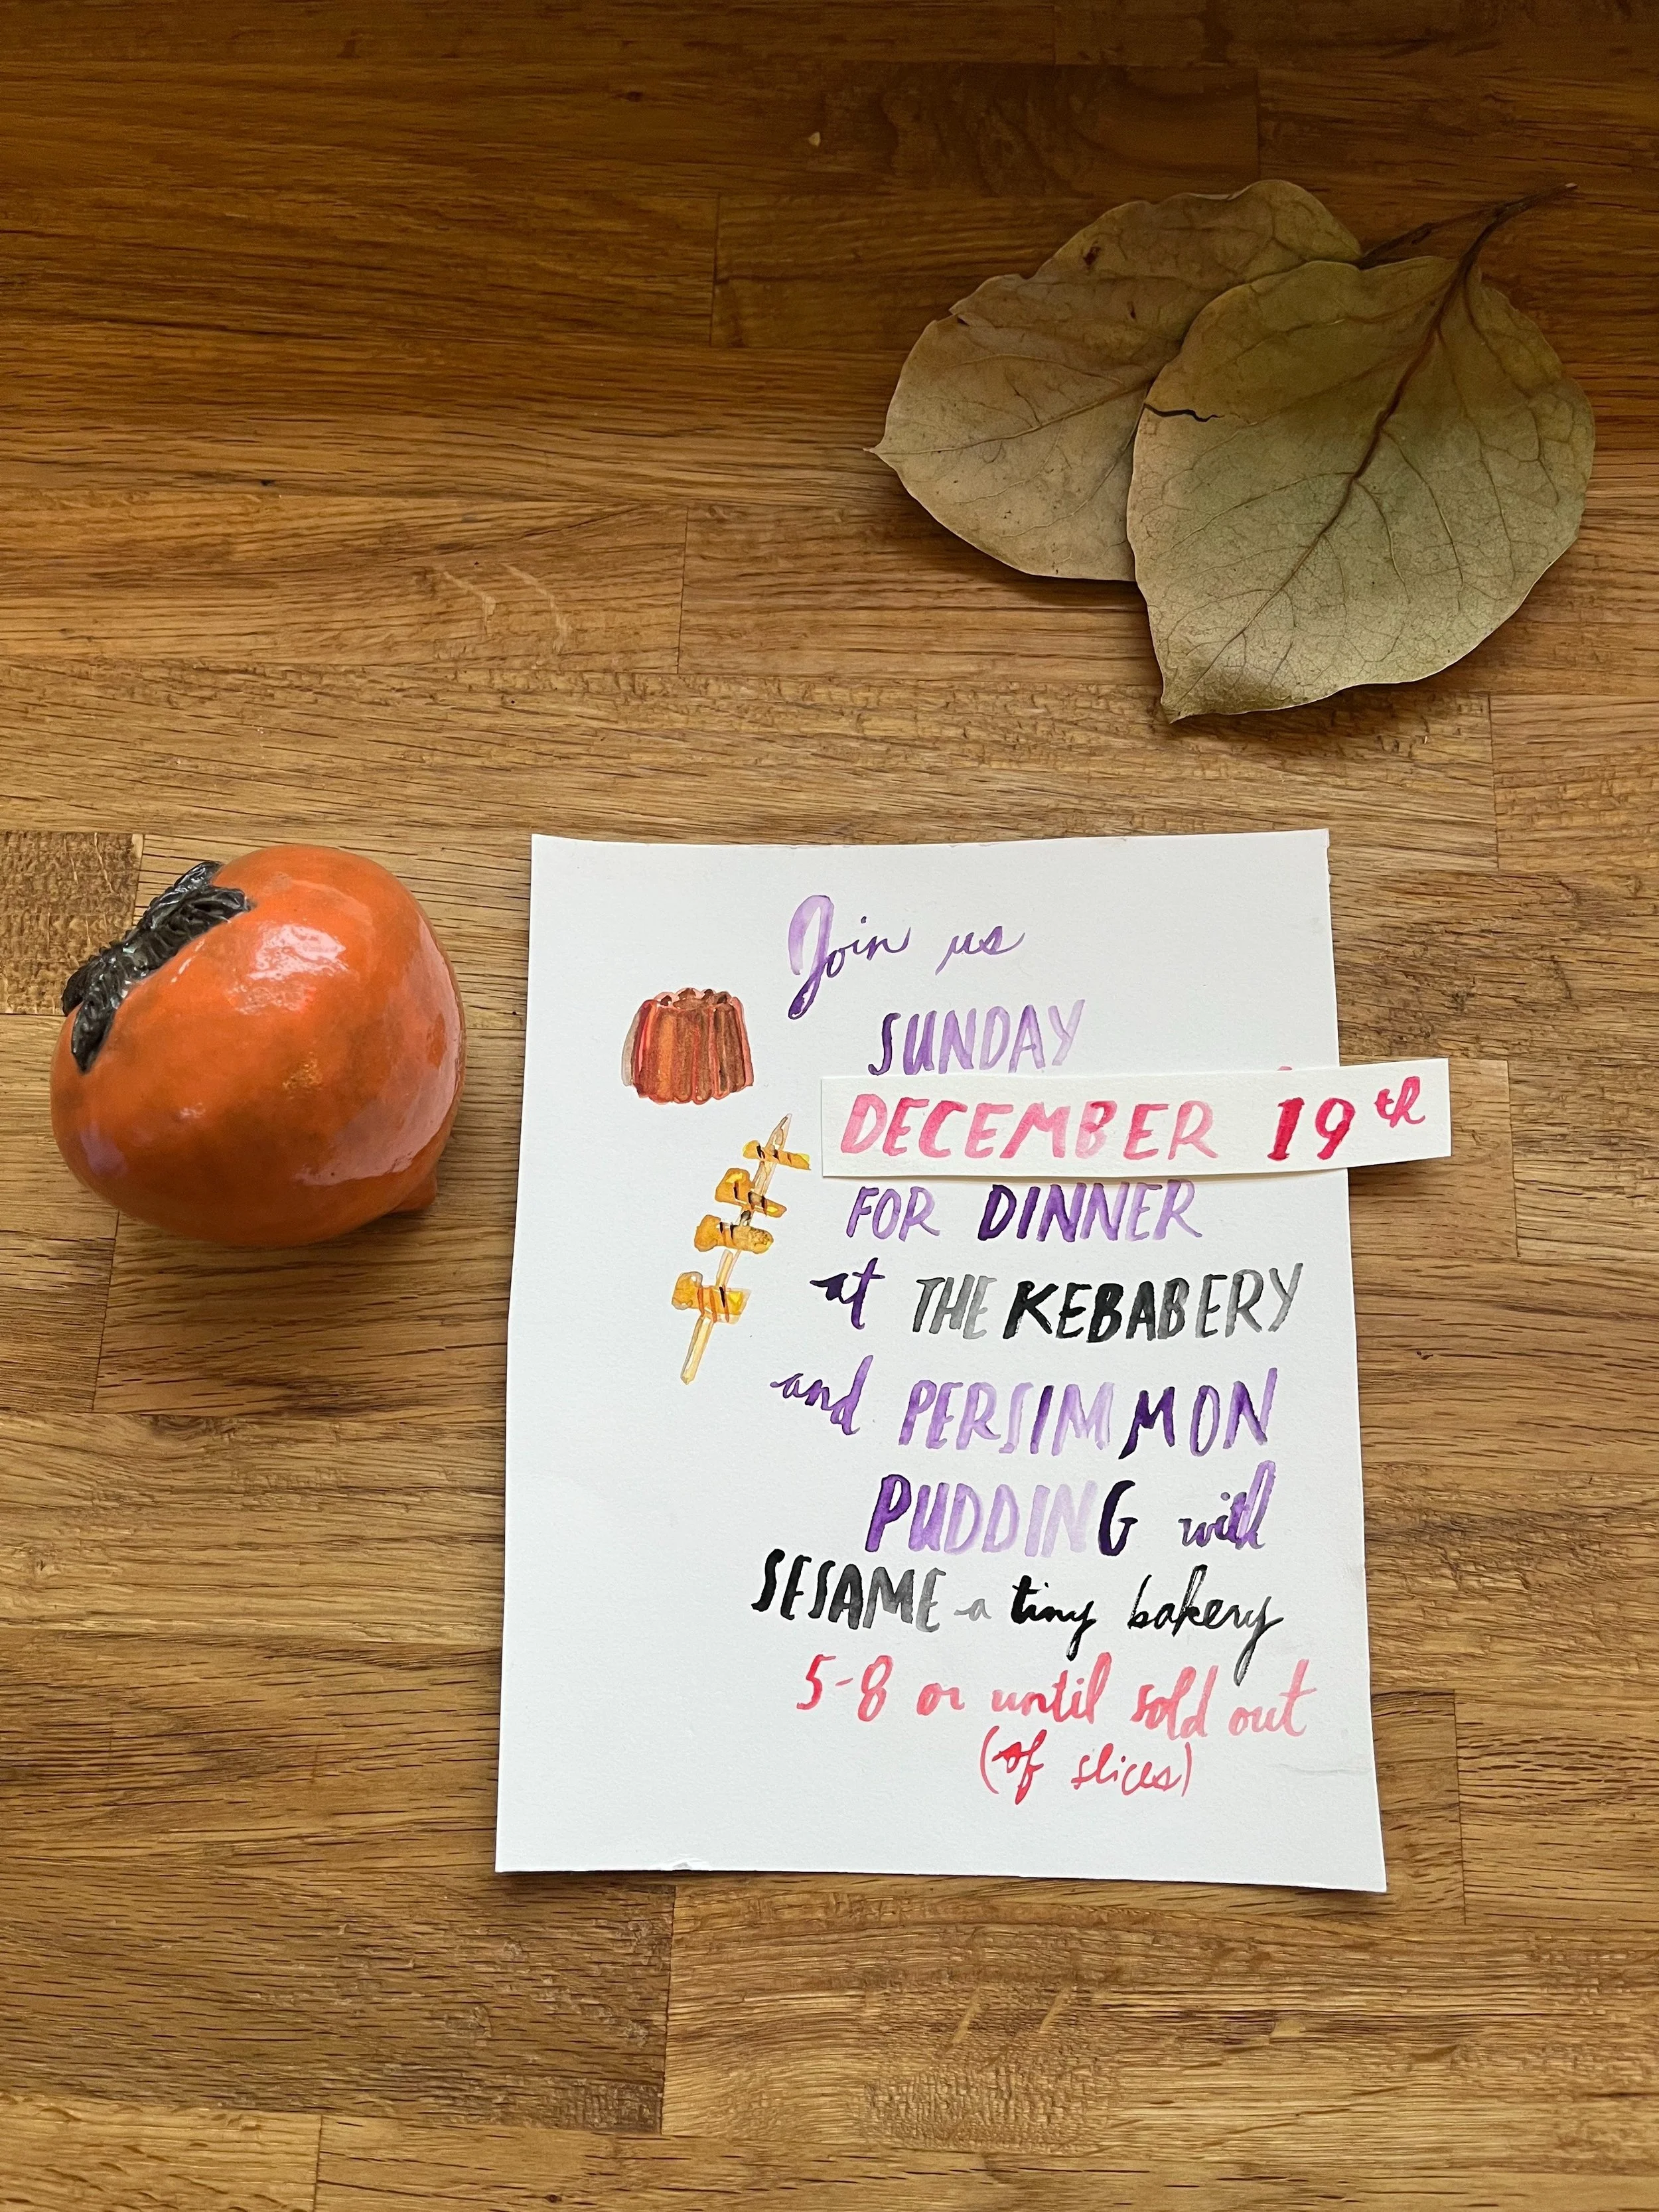 Join us
SUNDAY
DECEMBER 19th
FOR DINNER
at THE KEBABERY
and PERSIMMON
PUDDING with
SESAME a tiny bakery
5-8 or until sold out
(of slices)